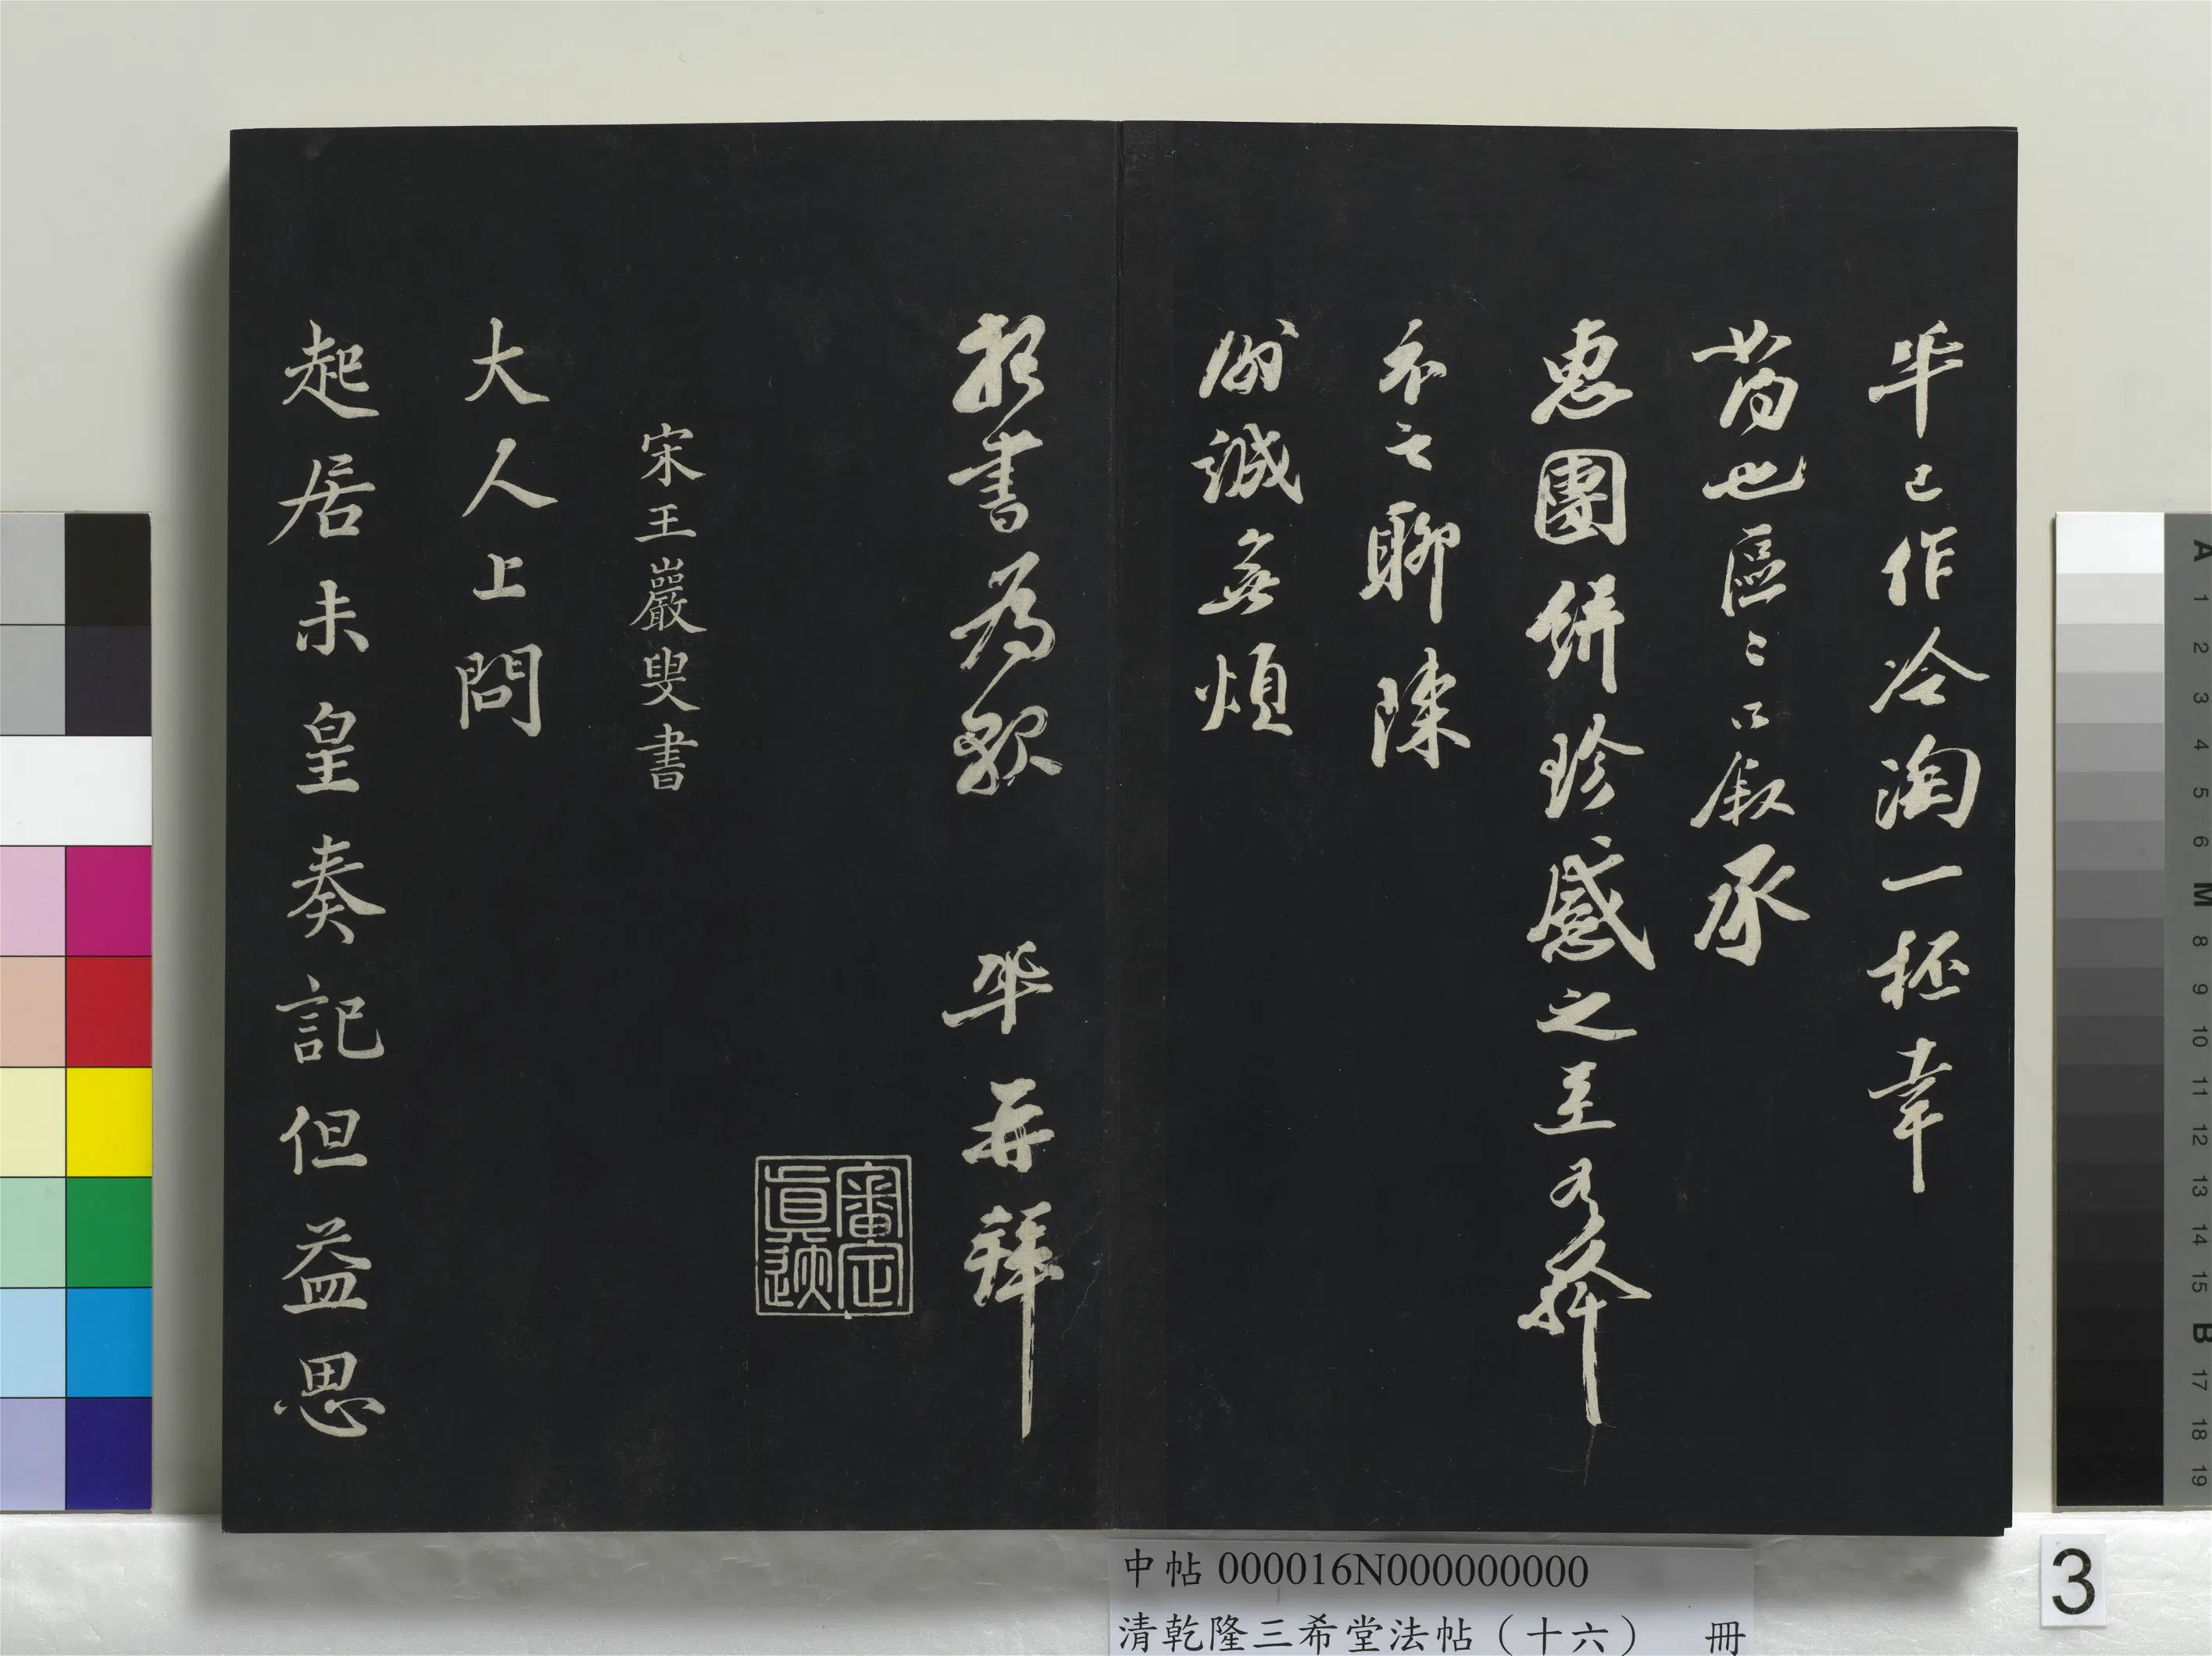 已作冷淘一杯幸
也區區口叙承
惠團餅珍感之至
聊陳
誠無煩
報書為 再拜
審定真跡
宋王巖叟書
大人上問
起居未皇奏記但益思
中帖 000016N000000000
清乾隆三希堂法帖（十六） 冊
3
A 1 2 3 4 5 6 M 8 9 10 11 12 13 14 15 B 17 18 19